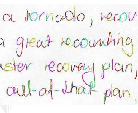 a tornado, recov
a great recounting
aster recovery plan,
all-of-that plan.